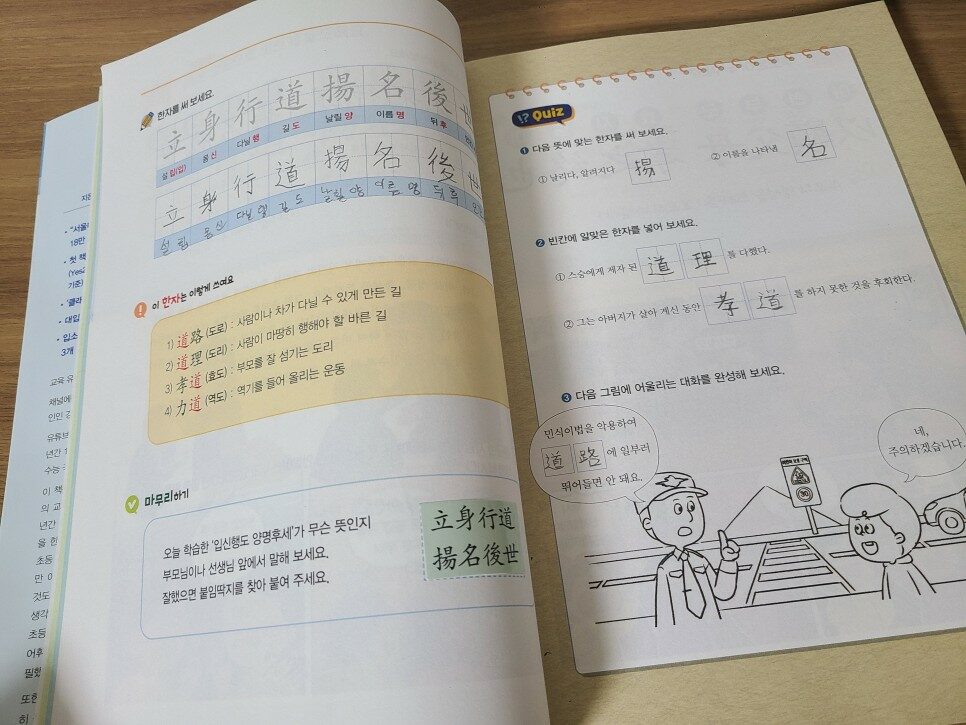 한자를 써 보세요.
立 身 行 道 揚 名 後 世
설 립(입) 몸 신 다닐 행 길 도 날릴 양 이름 명 뒤 후
立 身 行 道 揚 名 後 世
설 립 몸 신 다닐 행 길 도 날릴 양 이름 명 뒤 후
이 한자는 이렇게 쓰여요
1) 道路 (도로) : 사람이나 차가 다닐 수 있게 만든 길
2) 道理 (도리) : 사람이 마땅히 행해야 할 바른 길
3) 孝道 (효도) : 부모를 잘 섬기는 도리
4) 力道 (역도) : 역기를 들어 올리는 운동
마무리하기
오늘 학습한 '입신행도 양명후세'가 무슨 뜻인지
부모님이나 선생님 앞에서 말해 보세요.
잘했으면 붙임딱지를 찾아 붙여 주세요.
立身行道
揚名後世
!? Quiz
1 다음 뜻에 맞는 한자를 써 보세요.
① 날리다, 알려지다 揚
② 이름을 나타냄 名
2 빈칸에 알맞은 한자를 넣어 보세요.
① 스승에게 제자 된 道 理 를 다했다.
② 그는 아버지가 살아 계신 동안 孝 道 를 하지 못한 것을 후회한다.
3 다음 그림에 어울리는 대화를 완성해 보세요.
민식이법을 악용하여
道 路 에 일부러
뛰어들면 안 돼요.
네,
주의하겠습니다.
30